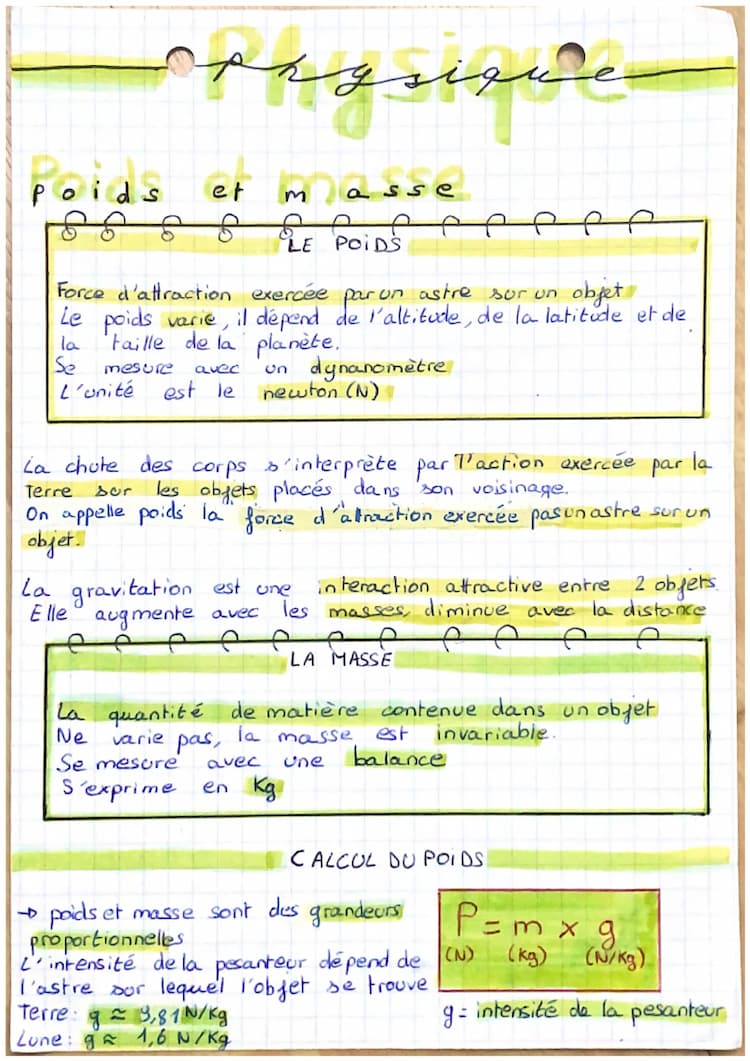 Physique
Poids et masse
LE POIDS
Force d'attraction exercée par un astre sur un objet
Le poids varie, il dépend de l'altitude, de la latitude et de
la taille de la planète.
Se mesure avec un dynanomètre
L'unité est le newton (N)
La chute des corps s'interprète par l'action exercée par la
Terre sur les objets placés dans son voisinage.
On appelle poids la force d'attraction exercée pas un astre sur un
objet.
La gravitation est une interaction attractive entre 2 objets.
Elle augmente avec les masses, diminue avec la distance
LA MASSE
La quantité de matière contenue dans un objet
Ne varie pas, la masse est invariable.
Se mesure avec une balance
S'exprime en Kg
CALCUL DU POIDS
→ poids et masse sont des grandeurs
proportionnelles
L'intensité de la pesanteur dépend de
l'astre sur lequel l'objet se trouve
Terre: g ≈ 9,81 N/Kg
Lune: g ≈ 1,6 N/Kg
P = m x g
(N) (Kg) (N/Kg)
g = intensité de la pesanteur